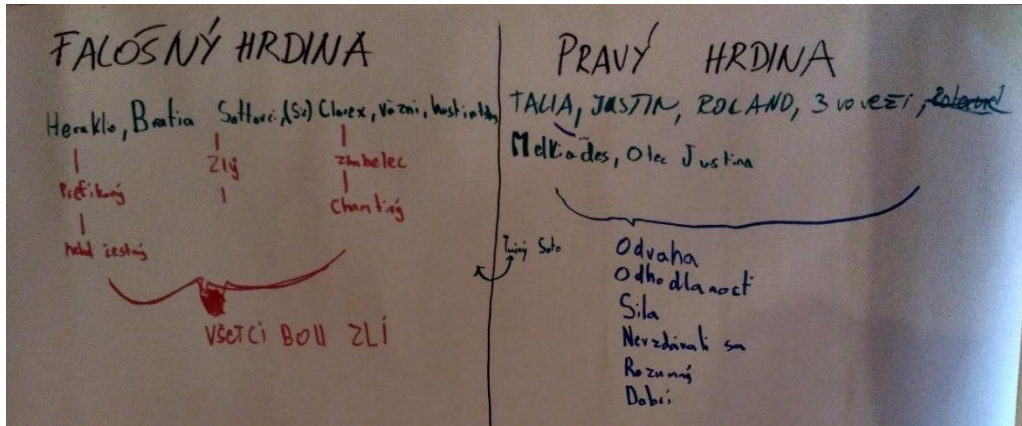 FALOŠNÝ HRDINA
Heraklo, Bratia Sottovci, (Sú) Clorex, väzni,
Prefíkaný
nebol čestný
Zlý
Chamtivý
VŠETCI BOLI ZLÍ
PRAVÝ HRDINA
TALIA, JUSTIN, ROLAND, 3 vo veži,
Melkiades, Otec Justina
Tučný Soto
Odvaha
Odhodlanosť
Sila
Nevzdávali sa
Rozumný
Dobrí